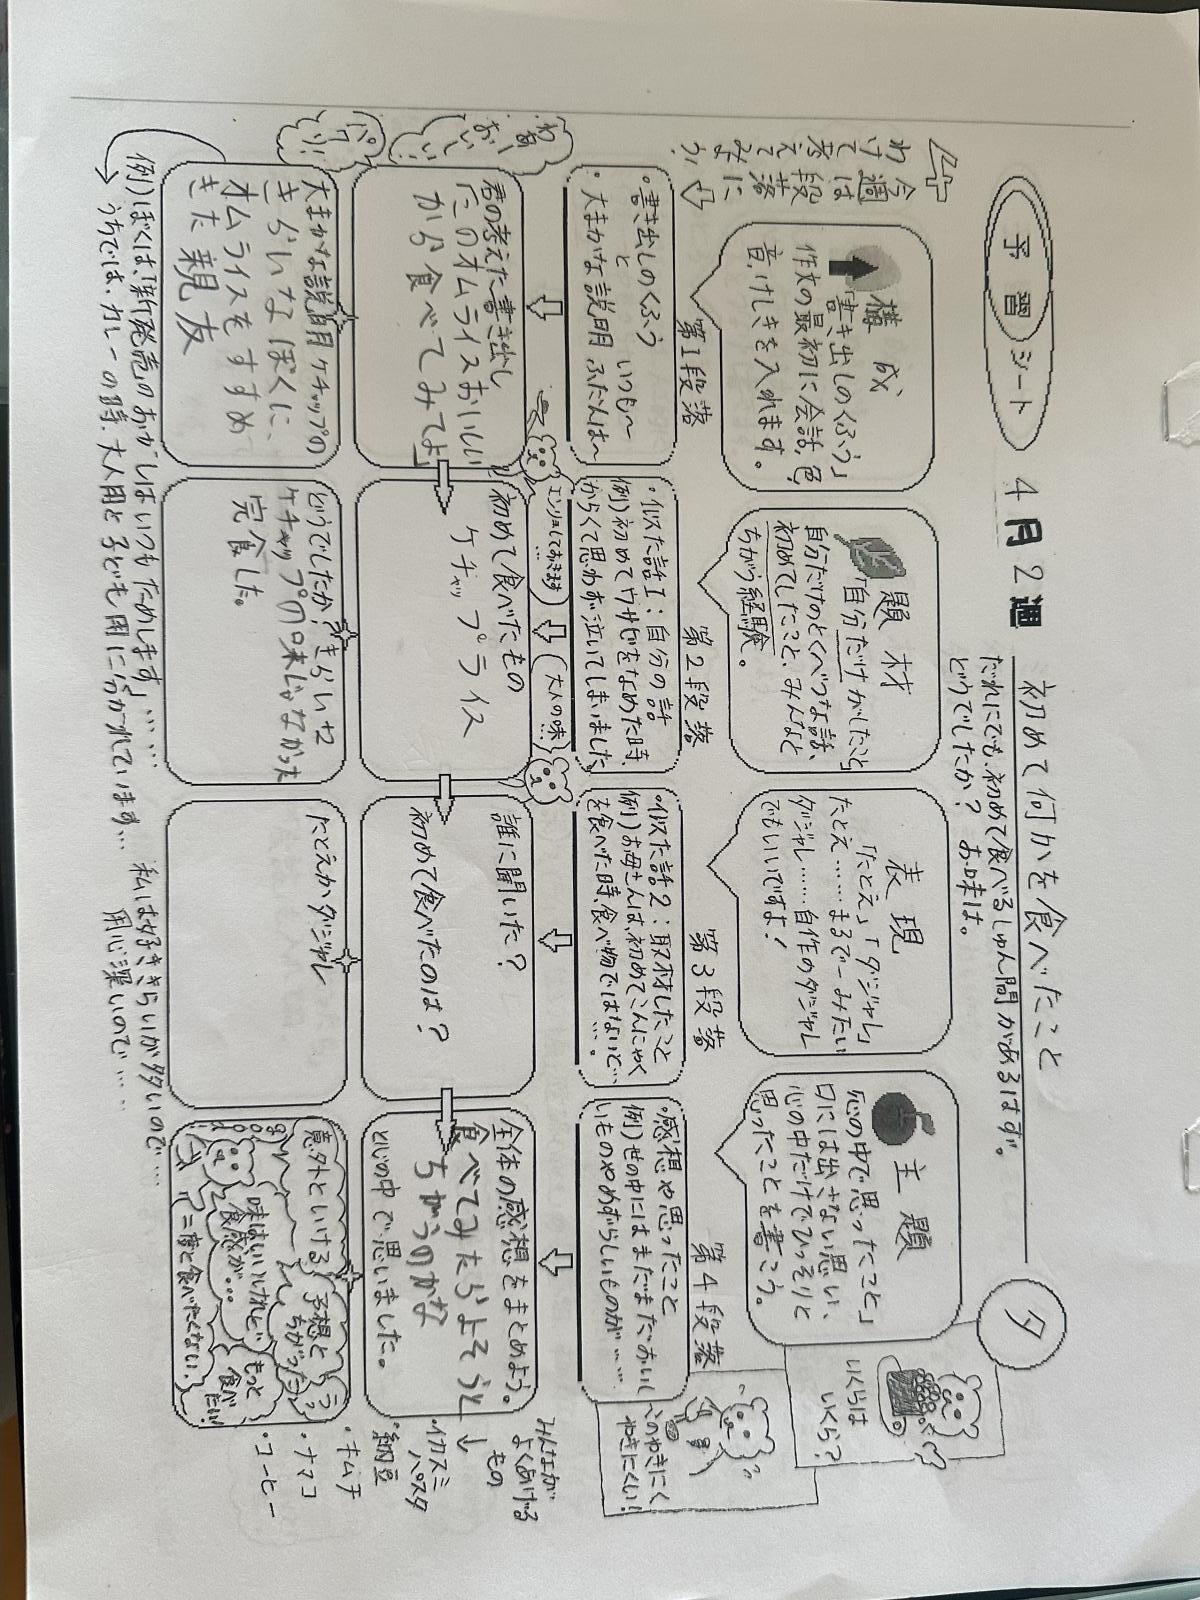 予習シート
4月2週
初めて何かを食べたこと
だれにでも、初めて食べるしゅん間があるはず。
どうでしたか? お味は。
夕
いくらは
いくら?
今週は段落に
わけて考えてみよう!
構成
「書き出しのくふう」
作文の最初に会話、色、
音、けしきを入れます。
題材
「自分だけがしたこと」
自分だけのとくべつな話、
初めてしたこと、みんなと
ちがう経験。
表現
「たとえ」「ダジャレ」
たとえ……まるで〜みたい
ダジャレ……自作のダジャレ
でもいいですよ!
主題
「心の中で思ったこと」
口には出さない思い、
心の中だけでひっそりと
思ったことを書こう。
第1段落
・書き出しのくふう
と
・大まかな説明
いつも〜
ふだんは〜
第2段落
・似た話1:自分の話
例)初めてワサビをなめた時、
からくて思わず泣いてしまいました
第3段落
・似た話2:取材したこと
例)お母さんは、初めてこんにゃく
を食べた時、食べ物ではないと…。
第4段落
・感想や思ったこと
例)世の中にはまだまだおいし
いものやめずらしいものが……
このやきにく
やきにくい!
わぁー
おいしい!
パクリ!
君の考えた書き出し
「このオムライスおいしい
から食べてみてよ」
エンリョしておきます…
大人の味…
初めて食べたもの
ケチャップライス
誰に聞いた?
初めて食べたのは?
全体の感想をまとめよう。
食べてみたらよそうと
ちがうのかな
と心の中で思いました。
みんなが
よくあげる
もの
・イカスミ
パスタ
・納豆
・キムチ
・ナマコ
・コーヒー
大まかな説明 ケチャップの
きらいなぼくに、
オムライスをすすめて
きた親友
どうでしたか? きらいな
ケチャップの味じゃなかった
完食した。
たとえかダジャレ
意外といける
予想と
ちがったっ
味はいいけれど
食感が…
もっと
食べ
たい!
二度と食べたくない
例)ぼくは、「新発売のおかしはいつもためします」……
うちでは、カレーの時、大人用と子ども用に分かれています…
私は好ききらいが多いので…
用心深いので……